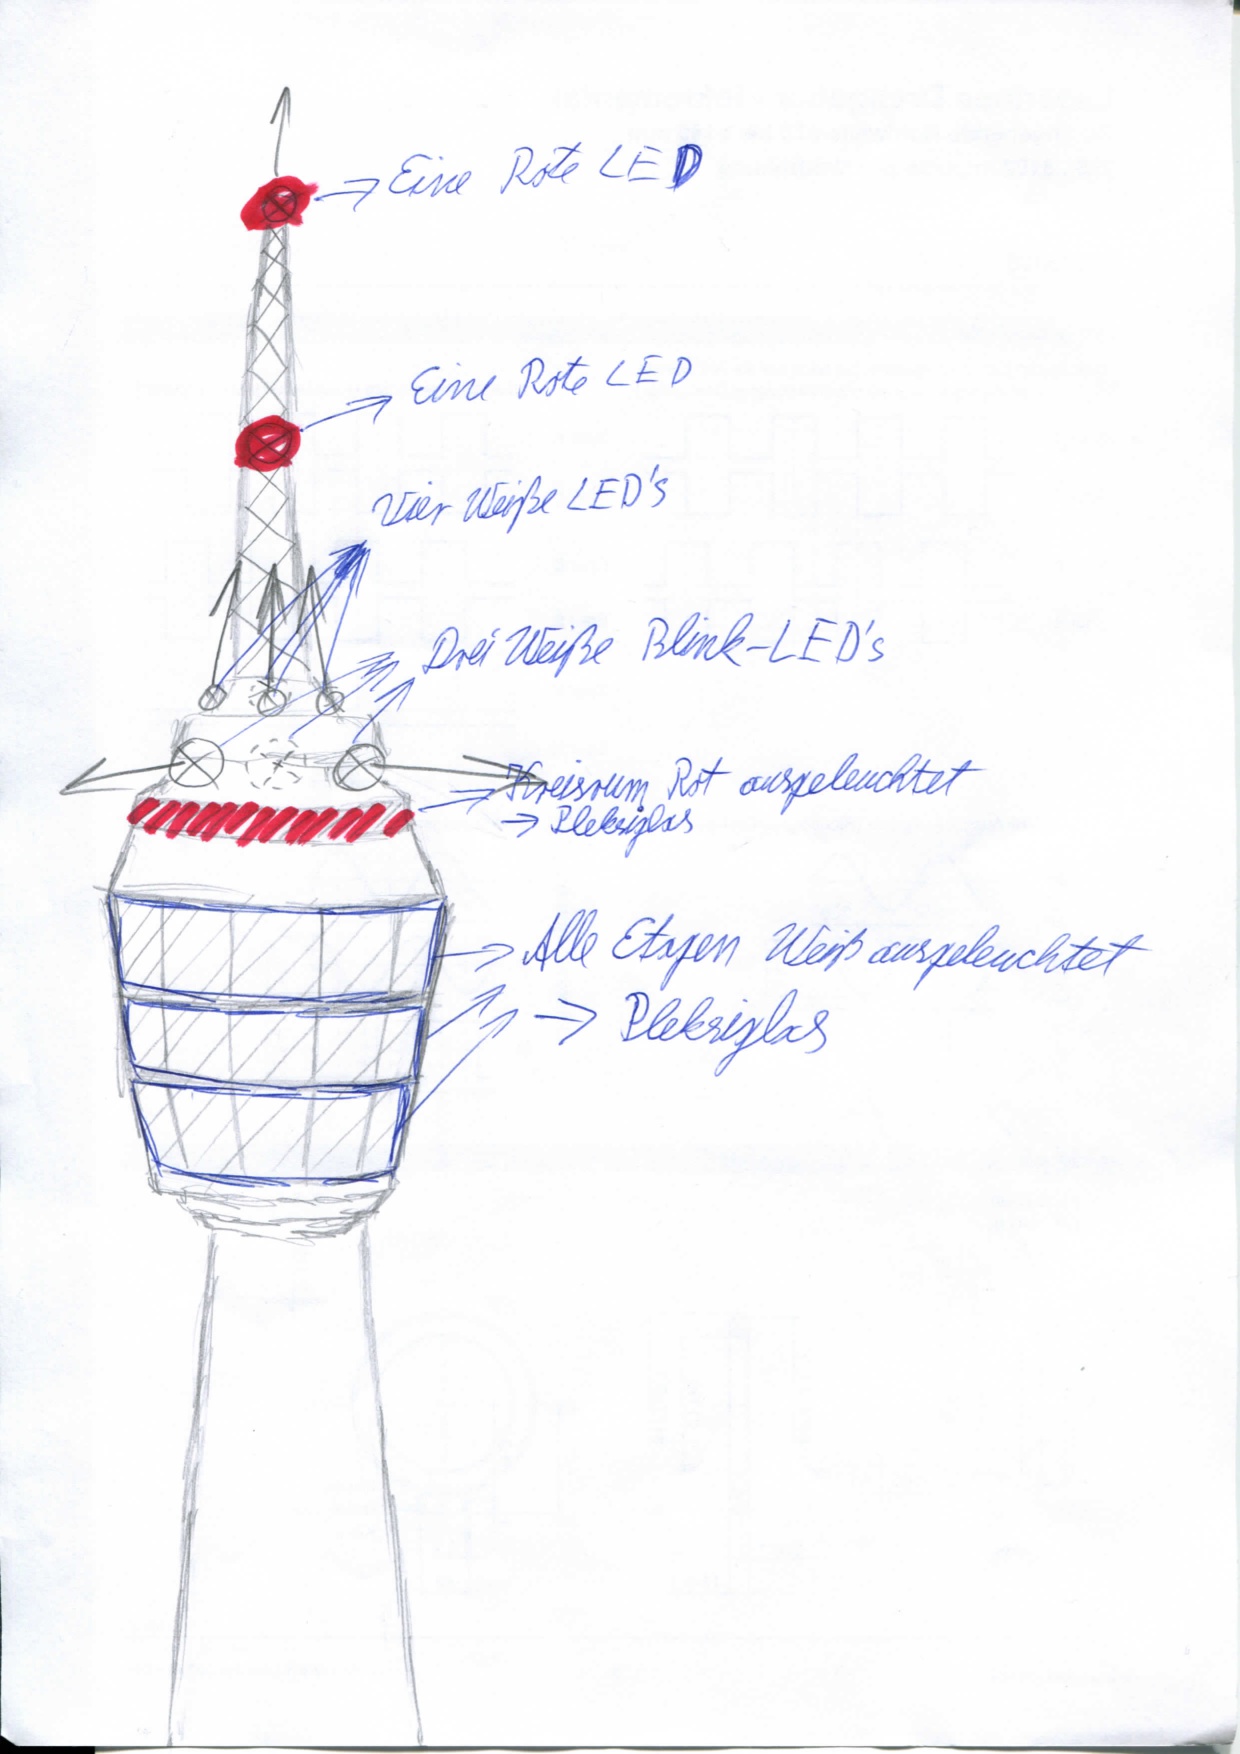 Eine Rote LED
Eine Rote LED
Vier Weiße LED's
Drei Weiße Blink-LED's
Kreisrum Rot ausgeleuchtet
→ Pleksiglas
Alle Etagen Weiß ausgeleuchtet
→ Pleksiglas